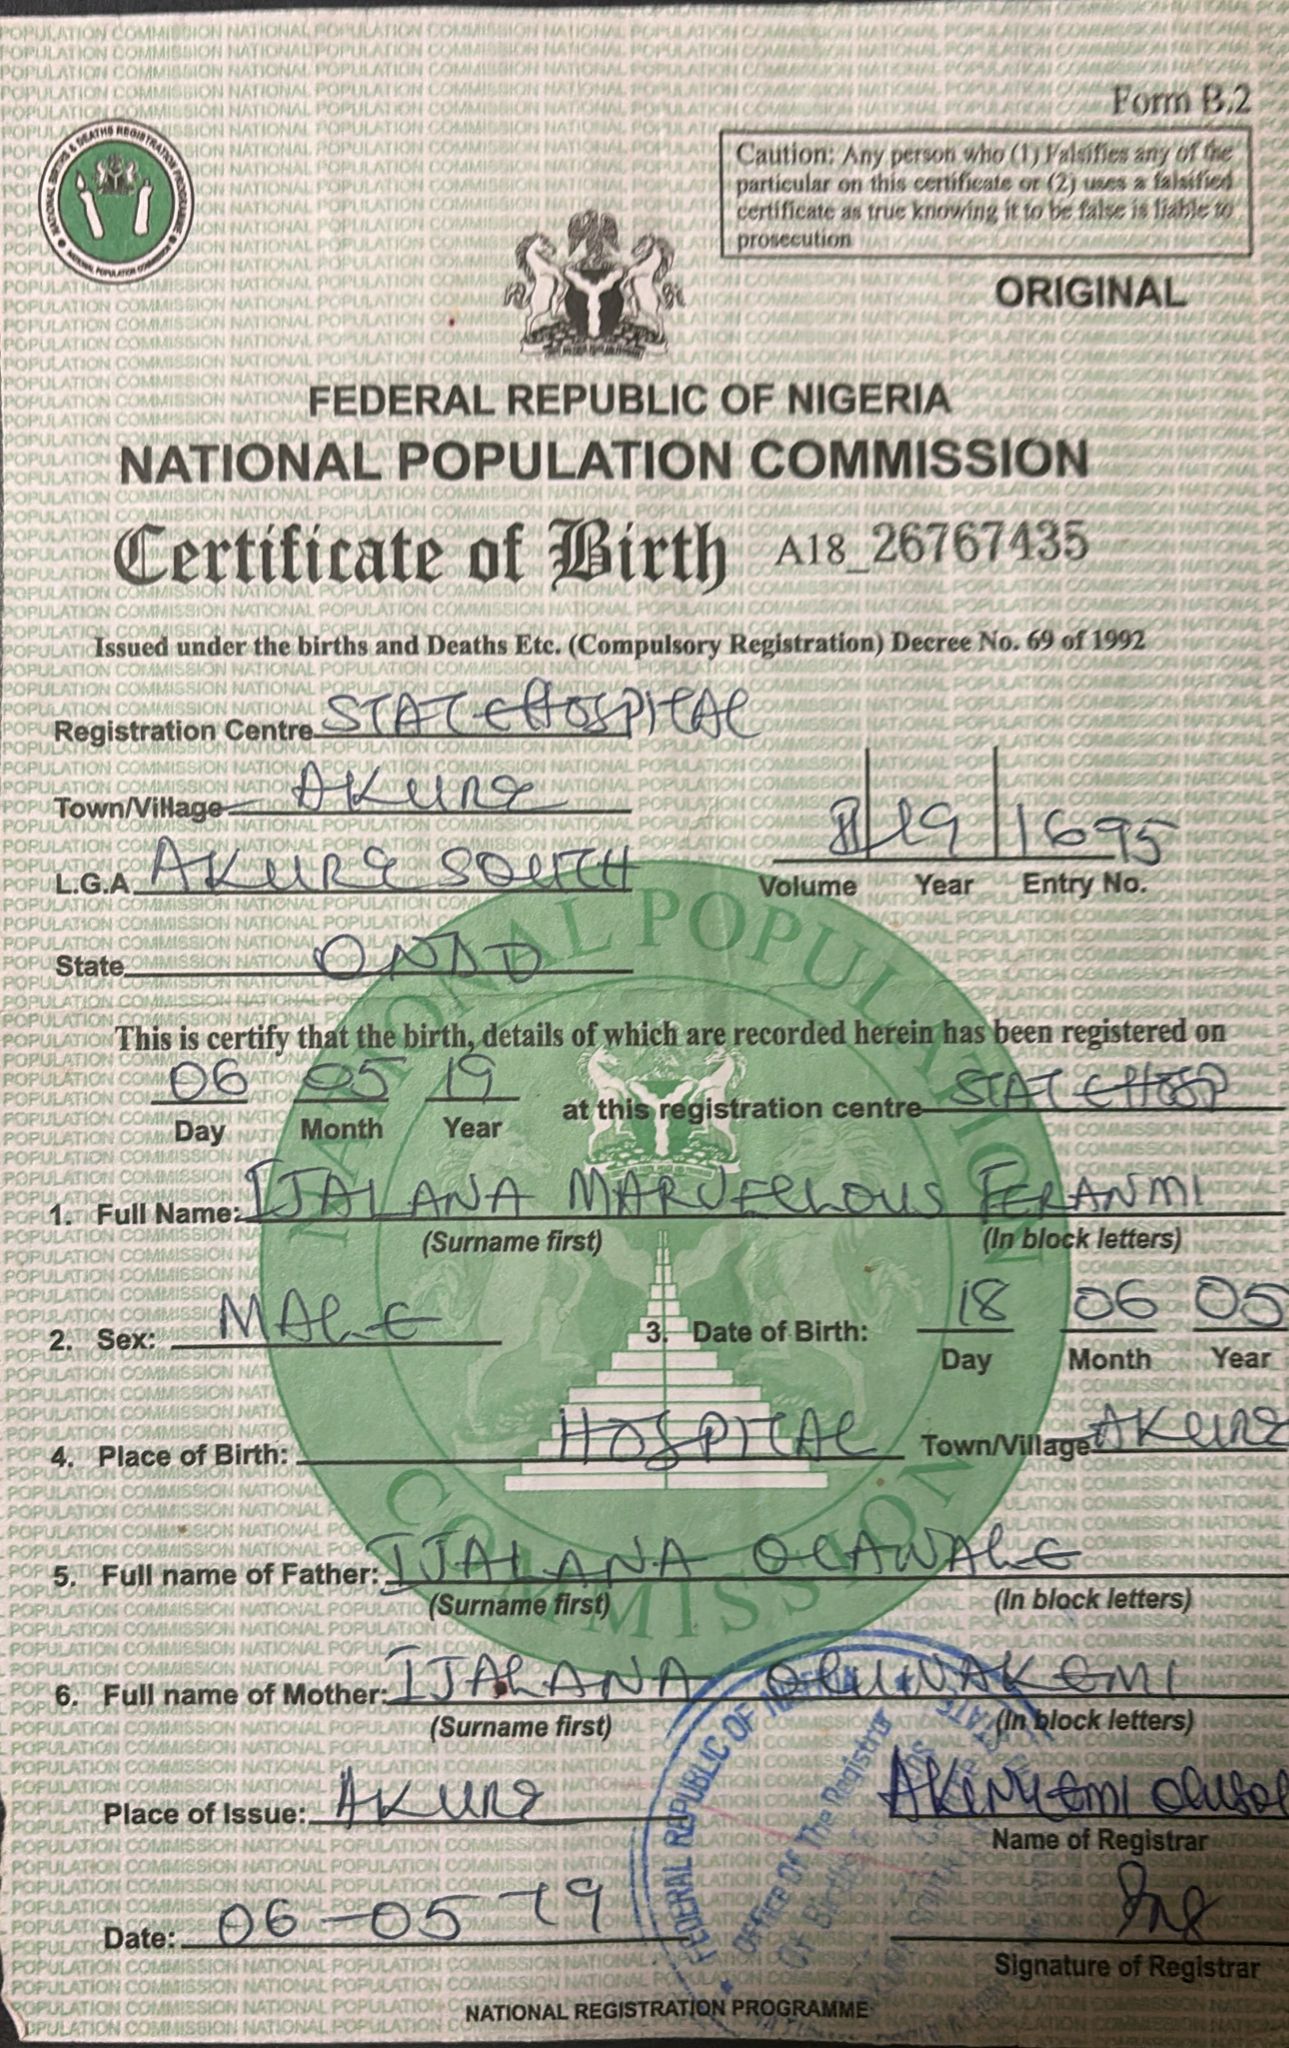 Form B.2
NATIONAL BIRTHS & DEATHS REGISTRATION PROGRAMME
NATIONAL POPULATION COMMISSION
Caution: Any person who (1) Falsifies any of the
particular on this certificate or (2) uses a falsified
certificate as true knowing it to be false is liable to
prosecution
ORIGINAL
FEDERAL REPUBLIC OF NIGERIA
NATIONAL POPULATION COMMISSION
Certificate of Birth A18_26767435
Issued under the births and Deaths Etc. (Compulsory Registration) Decree No. 69 of 1992
Registration Centre STATE HOSPITAL
Town/Village AKURE
L.G.A AKURE SOUTH
19 1695
Volume Year Entry No.
State ONDO
This is certify that the birth, details of which are recorded herein has been registered on
06 05 19 at this registration centre STATE HOSP
Day Month Year
1. Full Name: IJALANA MARVELLOUS FERANMI
(Surname first) (In block letters)
2. Sex: MALE 3. Date of Birth: 18 06 05
Day Month Year
4. Place of Birth: HOSPITAL Town/Village AKURE
5. Full name of Father: IJALANA OLAWALE
(Surname first) (In block letters)
6. Full name of Mother: IJALANA
(Surname first) (In block letters)
Place of Issue: AKURE
Name of Registrar
Date: 06-05-19
Signature of Registrar
FEDERAL REPUBLIC OF NIGERIA
Office of The Registrar
Of Births
NATIONAL REGISTRATION PROGRAMME
NATIONAL POPULATION COMMISSION